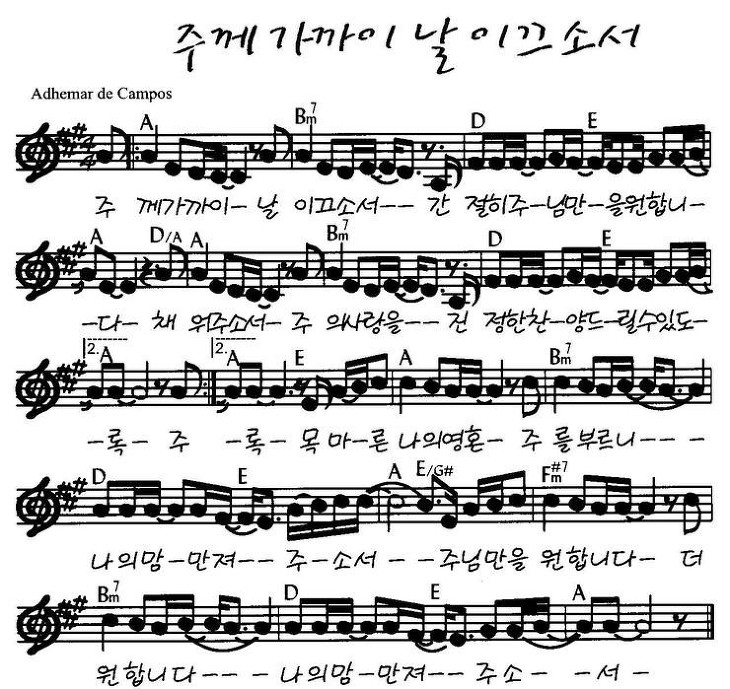 주께 가까이 날 이끄소서
Adhemar de Campos
A Bm7 D E
4/4
주 께가까이- 날 이끄소서-- 간 절히주-님만-을원합니-
A D/A A Bm7 D E
-다- 채 워주소서- 주 의사랑을-- 진 정한찬-양드-릴수있도-
2. A 2. A E A Bm7
-록- 주 -록- 목 마-른 나의영혼- 주 를부르니---
D E A E/G# F#m7
나의맘-만져-- 주-소서 - -주님만을 원합니다- 더
Bm7 D E A
원합니다--- 나의맘-만져-- 주소- -서-